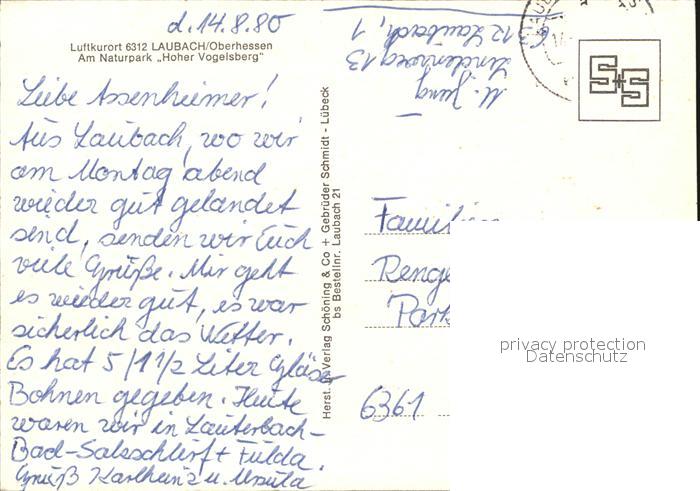 d. 14.8.80
Luftkurort 6312 LAUBACH/Oberhessen
Am Naturpark „Hoher Vogelsberg“
Liebe Assenheimer!
Aus Laubach, wo wir
am Montag abend
wieder gut gelandet
sind, senden wir Euch
viele Grüße. Mir geht
es wieder gut, es war
sicherlich das Wetter.
Es hat 5/1 1/2 Liter Gläser
Bohnen gegeben. Heute
waren wir in Lauterbach-
Bad-Salzschlirf + Fulda.
Gruß Karlheinz u. Ursula
Herst. u. Verlag Schöning & Co + Gebrüder Schmidt - Lübeck
bs Bestellnr. Laubach 21
M. Jung
Lindenweg 13
6312 Laubach, 1
S+S
Famili
Renge
Park
6361
privacy protection
Datenschutz